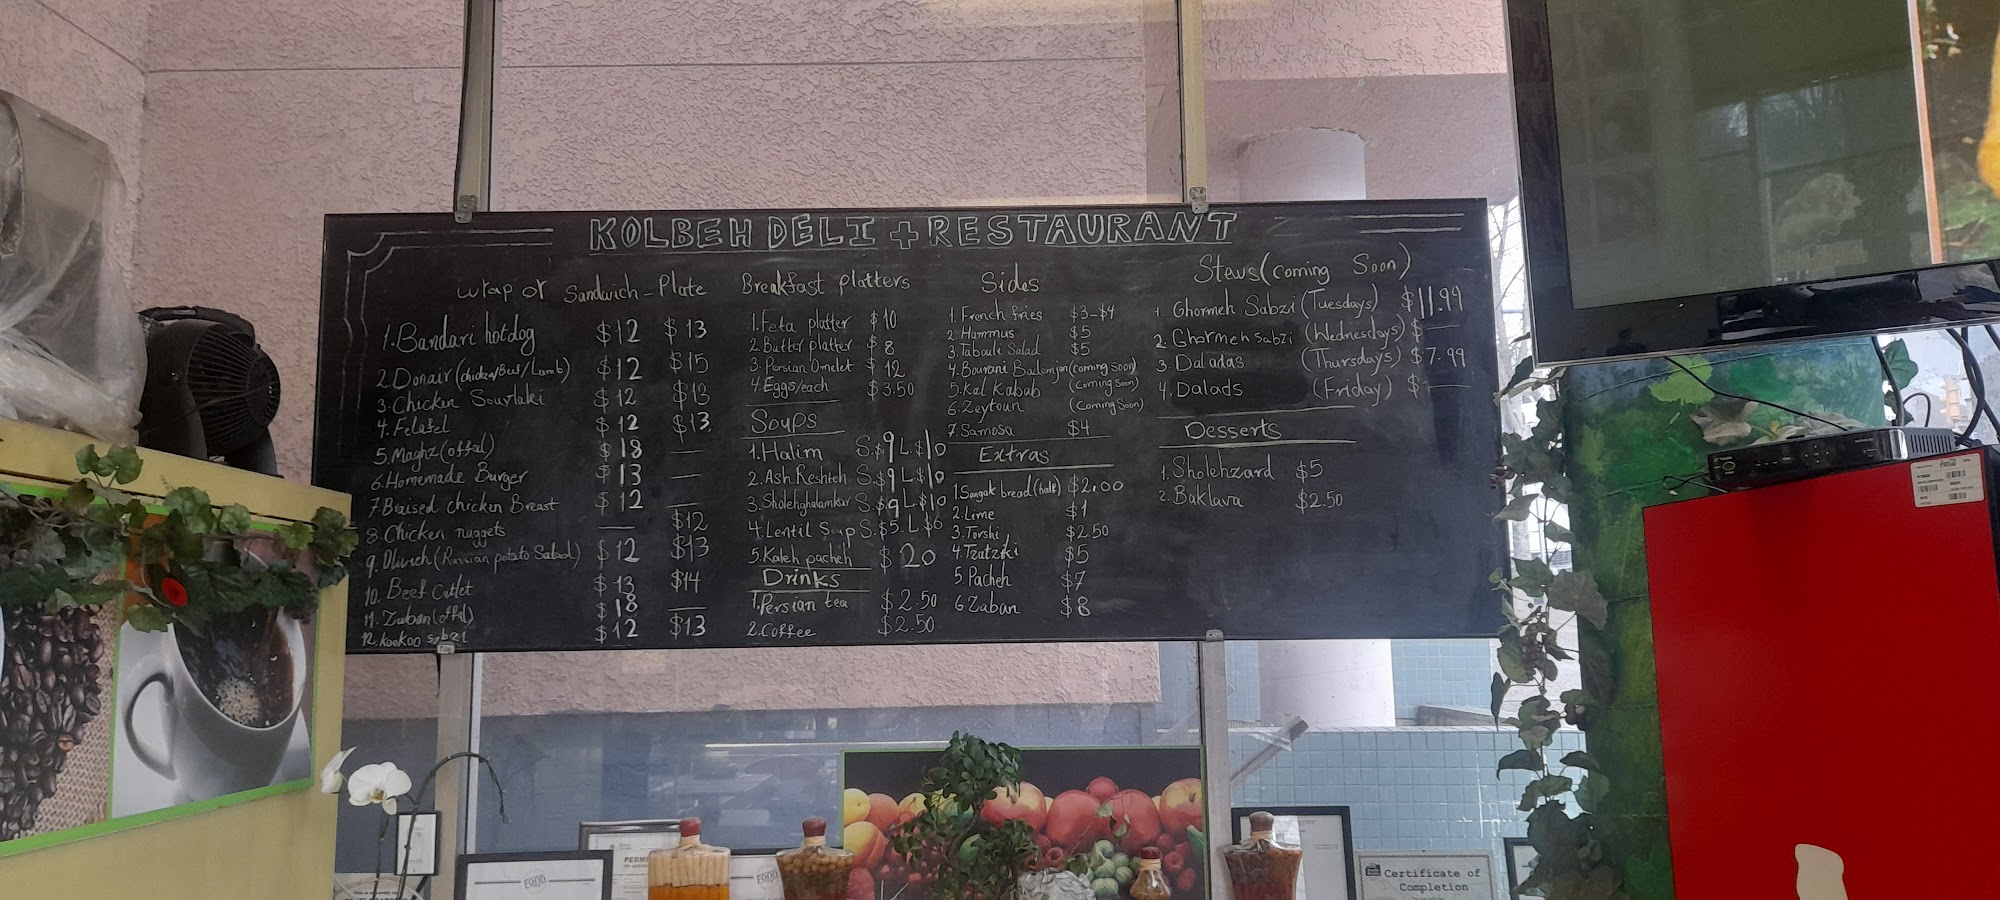 KOLBEH DELI + RESTAURANT
wrap or Sandwich - Plate
1. Bandari hotdog $12 $13
2. Donair (chicken/Beef/Lamb) $12 $15
3. Chicken Souvlaki $12 $13
4. Felafel $12 $13
5. Maghz (offal) $18 —
6. Homemade Burger $13 —
7. Braised chicken Breast $12 —
8. Chicken nuggets — $12
9. Olivieh (Russian potato Salad) $12 $13
10. Beef Cutlet $13 $14
11. Zaban (offal) $18 —
12. Kookoo sabzi $12 $13
Breakfast platters
1. Feta platter $10
2. Butter platter $8
3. Persian Omelet $12
4. Eggs/each $3.50
Soups
1. Halim S.$9 L.$10
2. Ash Reshteh S.$9 L.$10
3. Sholehghalamkar S.$9 L.$10
4. Lentil Soup S.$5. L $6
5. Kaleh pacheh $20
Drinks
1. Persian tea $2.50
2. Coffee $2.50
Sides
1. French fries $3-$4
2. Hummus $5
3. Tabouli Salad $5
4. Bourani Bademjan (coming Soon)
5. Kal Kabab (Coming Soon)
6. Zeytoun (Coming Soon)
7. Samosa $4
Extras
1. Sangak bread (half) $2.00
2. Lime $1
3. Torshi $2.50
4. Tzatziki $5
5. Pacheh $7
6 Zaban $8
Stews (coming Soon)
1. Ghormeh Sabzi (Tuesdays) $11.99
2. Ghormeh Sabzi (Wednesdays) $ —
3. Daladas (Thursdays) $7.99
4. Dalads (Friday) $ —
Desserts
1. Sholehzard $5
2. Baklava $2.50
Certificate of
Completion